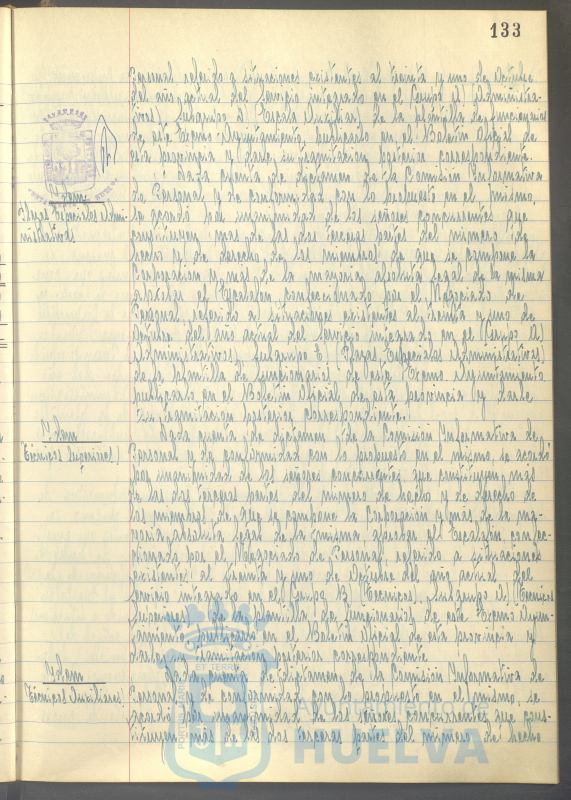 133
Personal referido a situaciones existentes al treinta y uno de Octubre
del año actual del Servicio integrado en el Grupo A) Administra-
tivos, Subgrupo D) Escala Auxiliar) de la plantilla de funcionarios
de este Excmo Ayuntamiento, publicarlo en el Boletín Oficial de
esta provincia y darle su tramitacion posterior correspondiente.
Idem
Plazas Especiales Admi-
nistrativas
Dada cuenta de dictamen de la Comisión Informativa
de Personal y de conformidad con lo propuesto en el mismo,
se acordó por unanimidad de los señores concurrentes que
constituyen mas de las dos terceras partes del número de
hecho y de derecho de los miembros de que se compone la
Corporación y más de la mayoria absoluta legal de la misma
aprobar el Escalafón confeccionado por el Negociado de
Personal, referido a situaciones existentes al treinta y uno de
Octubre del año actual del Servicio integrado en el (Grupo A)
Administrativos), Subgrupo E) (Plazas Especiales Administrativas)
de la plantilla de funcionarios de este Excmo Ayuntamiento
publicarlo en el Boletín Oficial de esta provincia y darle
su tramitacion posterior correspondiente.
Idem
Técnicos Superiores)
Dada cuenta de dictamen de la Comisión Informativa de
Personal y de conformidad con lo propuesto en el mismo, se acordó
por unanimidad de los señores concurrentes, que constituyen más
de las dos terceras partes del número de hecho y de derecho de
los miembros de que se compone la Corporacion y más de la ma-
yoria absoluta legal de la misma, aprobar el Escalafón confec-
cionado por el Negociado de Personal, referido a situaciones
existentes al treinta y uno de Octubre del año actual, del
servicio integrado en el (Grupo B) (Técnicos), Subgrupo A) (Técnicos
Superiores) de la plantilla de funcionarios de este Excmo Ayun-
tamiento, publicarlo en el Boletín Oficial de esta provincia y
darle su tramitacion posterior correspondiente.
Idem
Técnicos Auxiliares)
Dada cuenta de dictamen de la Comisión Informativa de
Personal y de conformidad con lo propuesto en el mismo, se
acordó por unanimidad de los señores concurrentes que cons-
tituyen más de las dos terceras partes del número de hecho
Ayuntamiento de
HUELVA